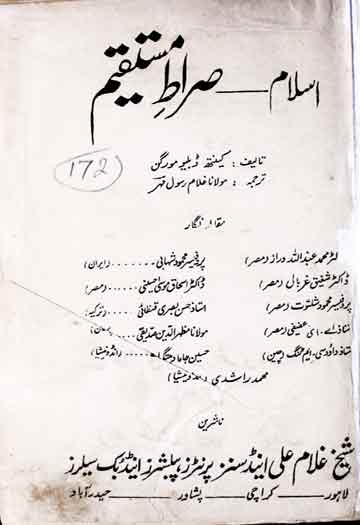 اسلام — صراطِ مستقیم
تالیف : کینتھ ڈبلیو مورگن
ترجمہ : مولانا غلام رسول مہر
172
مقالہ نگار
ڈاکٹر محمد عبداللہ دراز (مصر) پروفیسر محمود شہابی ....... (ایران)
ڈاکٹر شفیق غربال (مصر) ڈاکٹر اسحاق موسیٰ حسینی (مصر)
پروفیسر محمود شلتوت (مصر) استاذ حسن بصری (ترکیہ)
استاذ اے۔ ای عفیفی (مصر) مولانا مظہر الدین صدیقی
استاذ داؤد سی۔ ایم ٹنگ (چین) حسین جایا (انڈونیشیا)
محمد راشدی (انڈونیشیا)
ناشرین
شیخ غلام علی اینڈ سنز پرنٹرز، پبلشرز اینڈ بک سیلرز
لاہور — کراچی — پشاور — حیدرآباد